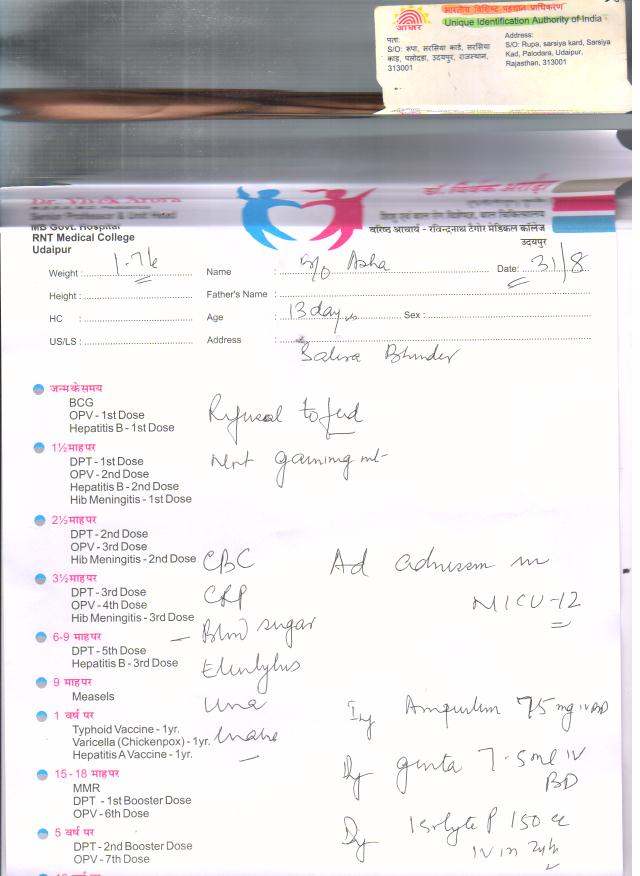 भारतीय विशिष्ट पहचान प्राधिकरण
Unique Identification Authority of India
आधार
पता:
S/O: रूपा, सरसिया कार्ड, सरसिया
काड़, पलोदड़ा, उदयपुर, राजस्थान,
313001
Address:
S/O: Rupa, sarsiya kard, Sarsiya
Kad, Palodara, Udaipur,
Rajasthan, 313001
Senior Professor & Unit Head
MB Govt. Hospital
RNT Medical College
Udaipur
वरिष्ठ आचार्य - रविन्द्रनाथ टैगोर मेडिकल कॉलेज
उदयपुर
Weight : 1.76
Name : B/O Asha
Date: 31/8
Height :
Father's Name :
HC :
Age : 13 days
Sex :
US/LS :
Address :
Bhinder
जन्म के समय
BCG
OPV - 1st Dose
Hepatitis B - 1st Dose
Refusal to feed
1½ माह पर
DPT - 1st Dose
OPV - 2nd Dose
Hepatitis B - 2nd Dose
Hib Meningitis - 1st Dose
Not gaining wt
2½ माह पर
DPT - 2nd Dose
OPV - 3rd Dose
Hib Meningitis - 2nd Dose
CBC
Ad admission in
NICU-12
3½ माह पर
DPT - 3rd Dose
OPV - 4th Dose
Hib Meningitis - 3rd Dose
CRP
Blood sugar
6-9 माह पर
DPT - 5th Dose
Hepatitis B - 3rd Dose
9 माह पर
Measels
Urea
1 वर्ष पर
Typhoid Vaccine - 1yr.
Varicella (Chickenpox) - 1yr.
Hepatitis A Vaccine - 1yr.
Inj Ampicillin 75 mg IV BD
Inj genta 7.5 IV
BD
15 - 18 माह पर
MMR
DPT - 1st Booster Dose
OPV - 6th Dose
Inj Isolyte P 150 cc
IV in 24h
5 वर्ष पर
DPT - 2nd Booster Dose
OPV - 7th Dose